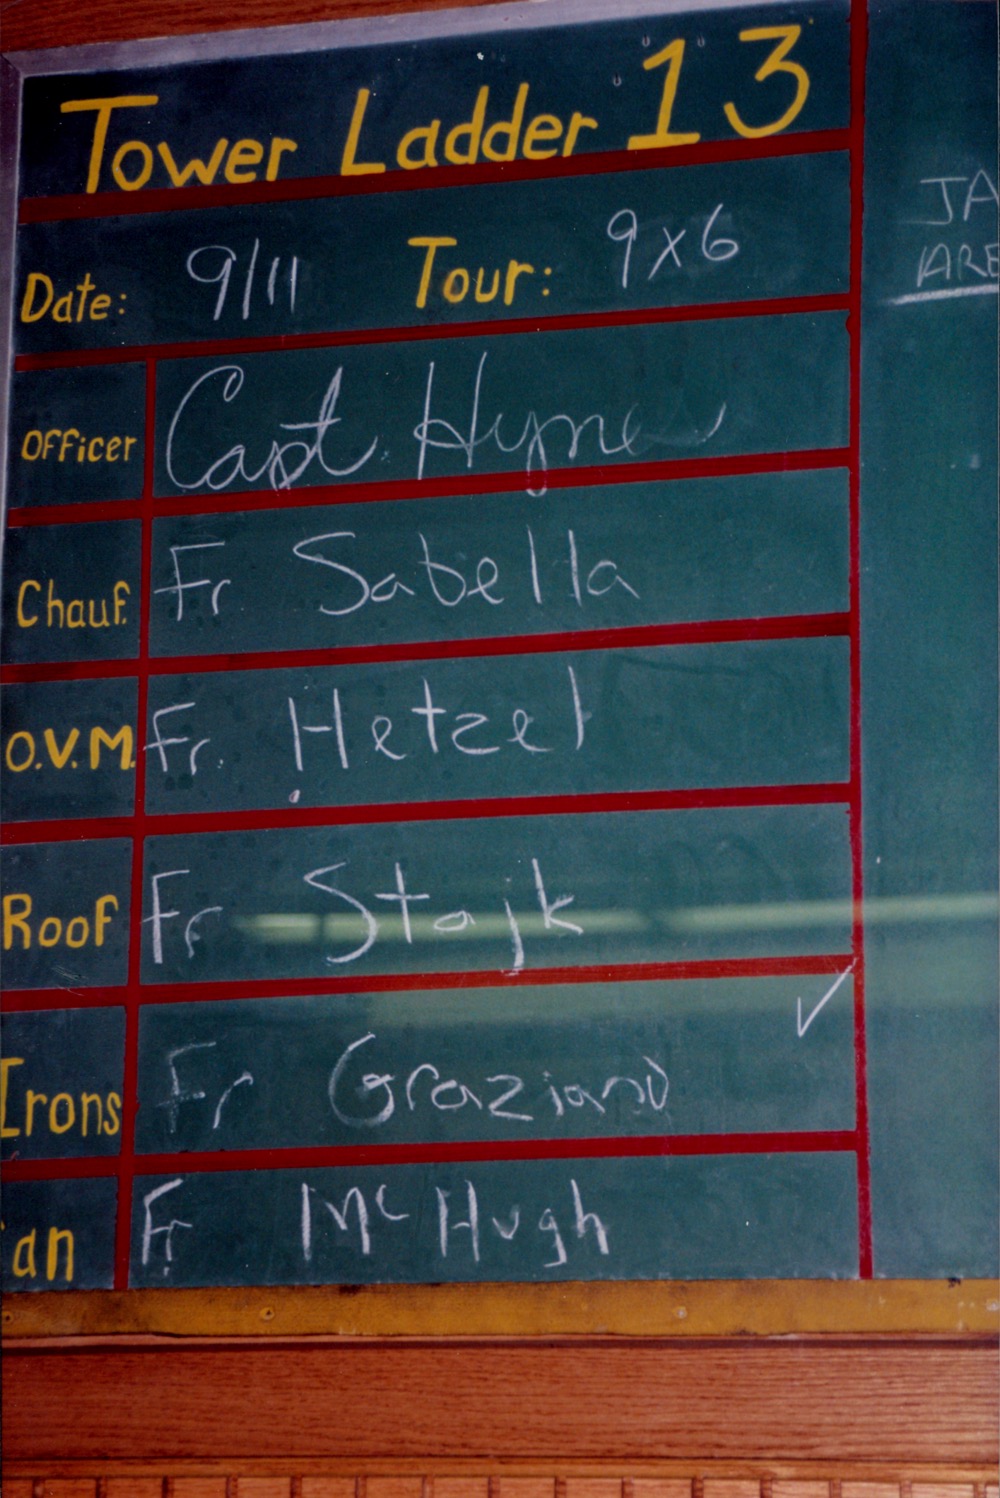 Tower Ladder 13
Date: 9/11 Tour: 9x6
Officer Capt Hynes
Chauf. Fr Sabella
O.V.M. Fr. Hetzel
Roof Fr Stajk
Irons Fr Graziano
an Fr McHugh
JA
ARE